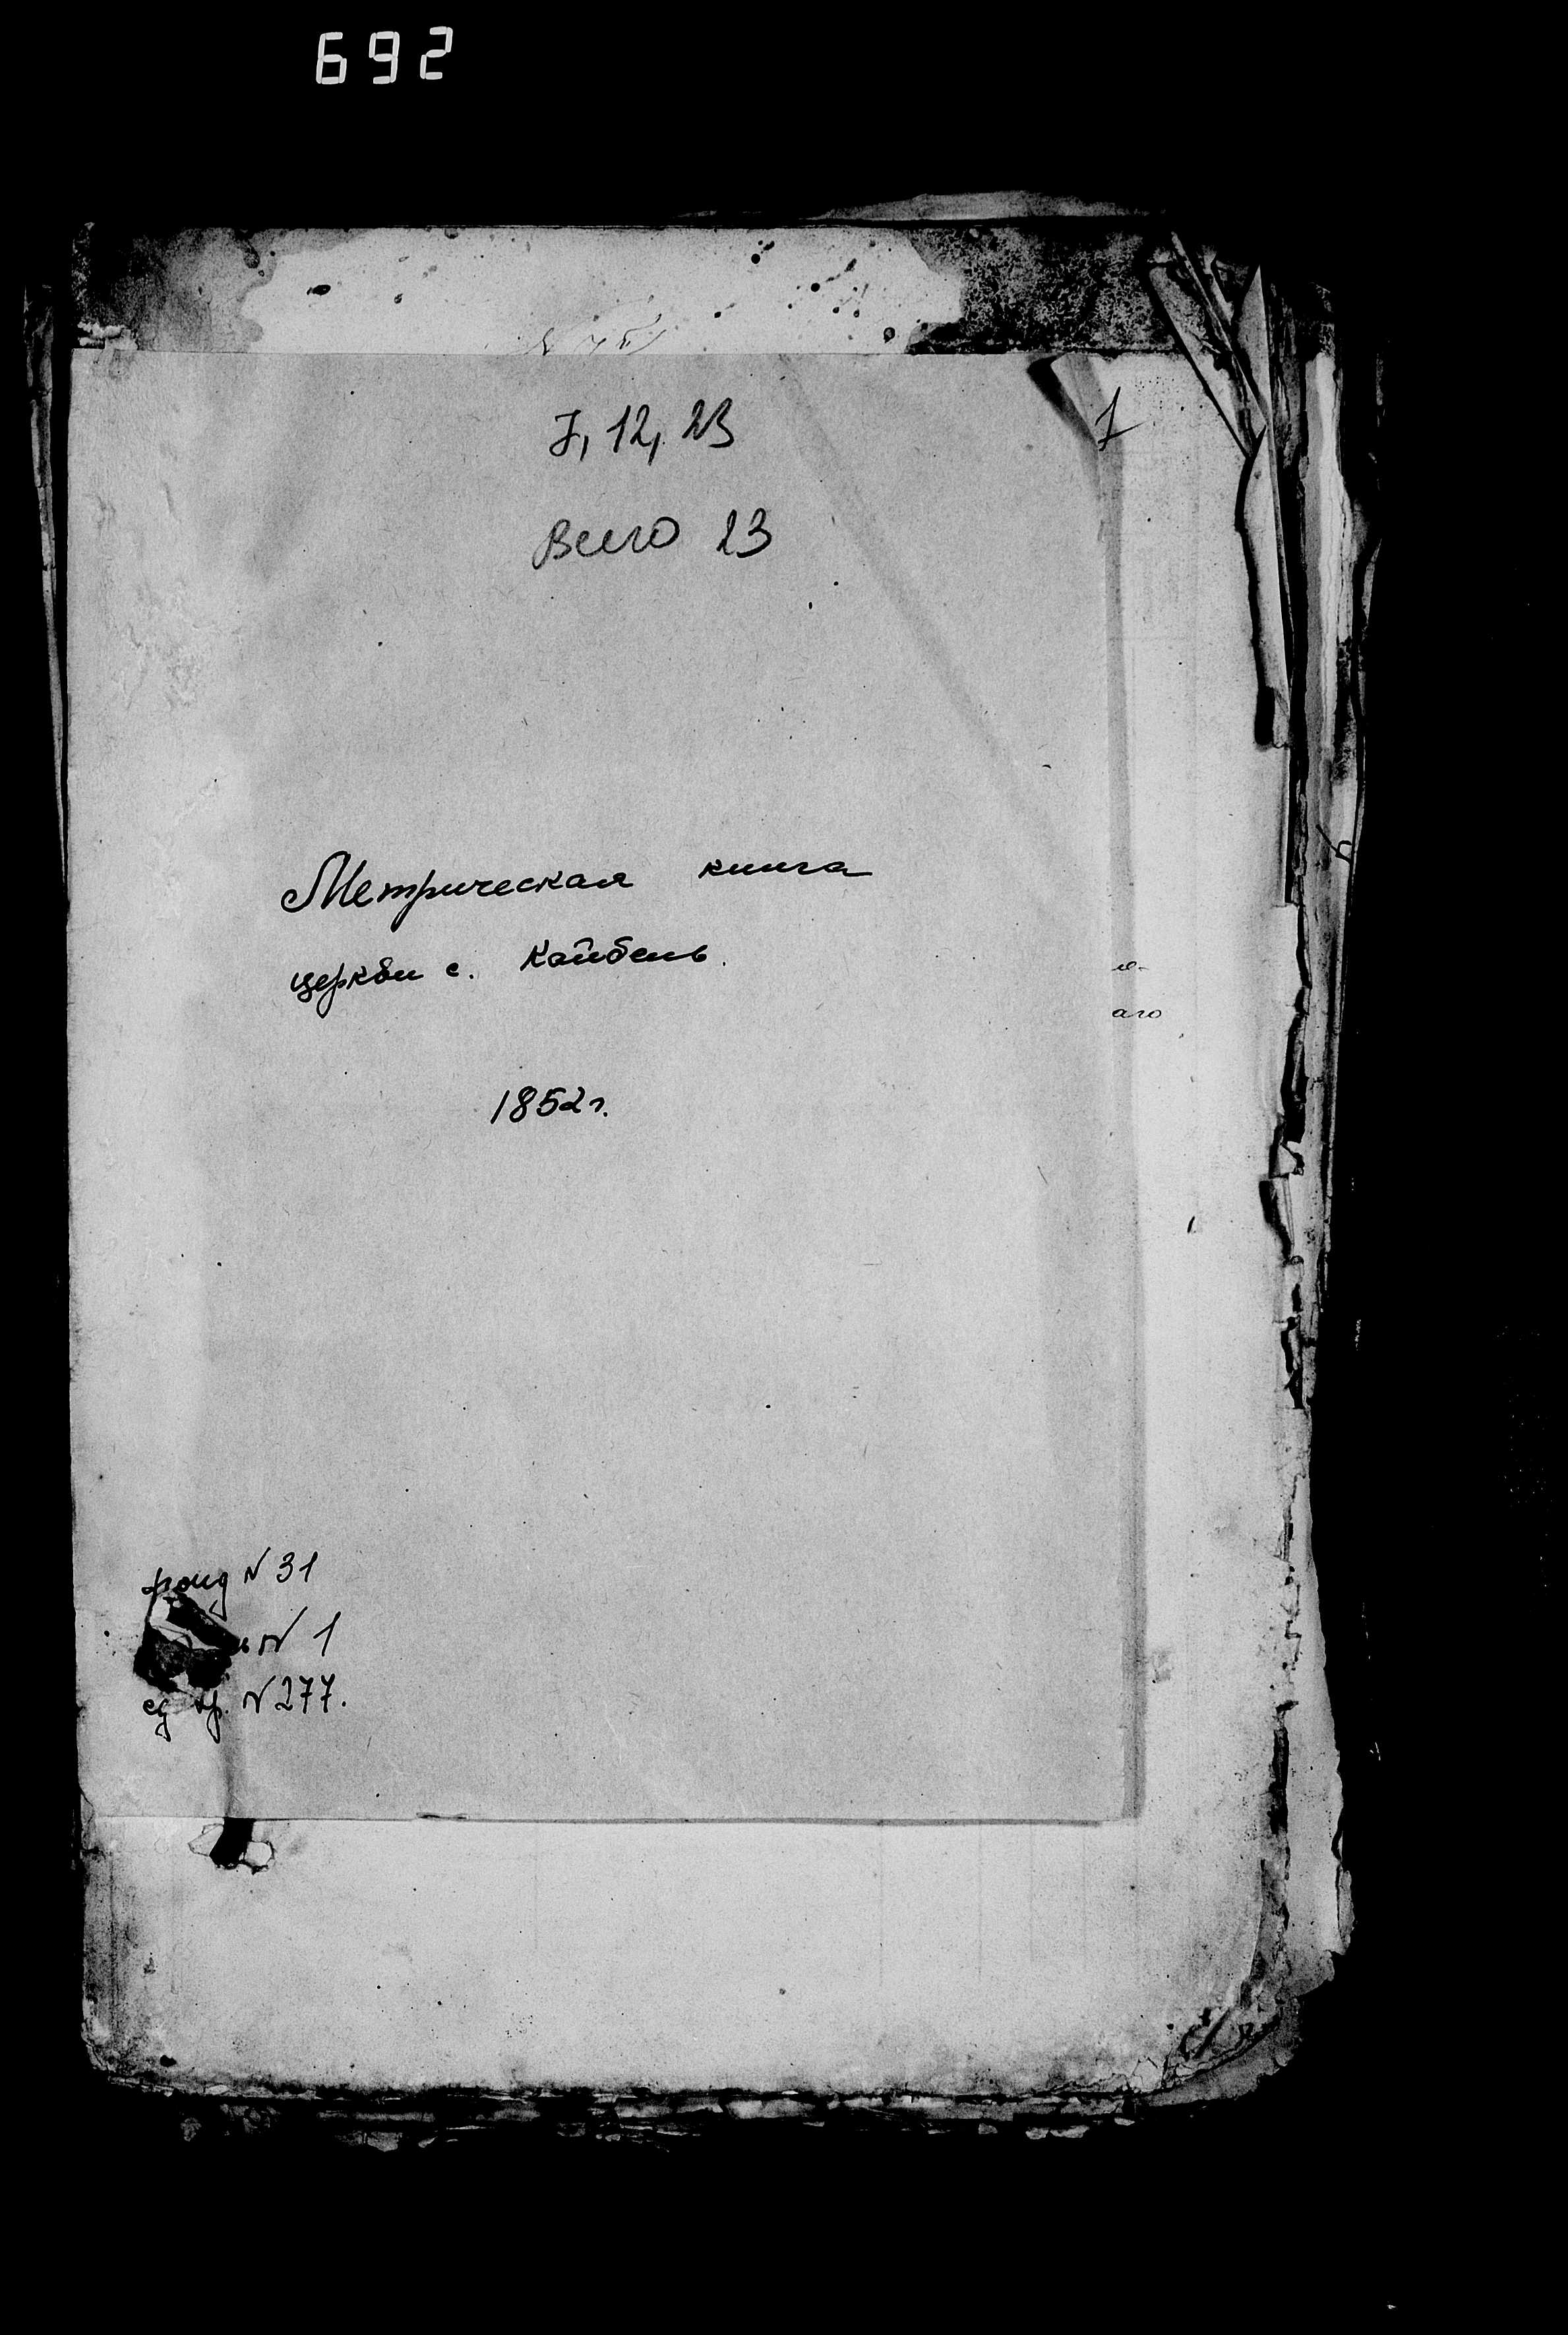 692
1
7, 12, 23
Всего 23
Метрическая книга
церкви с. Кайбелы.
аго
1852 г.
фонд N 31
N 1
ед хр. N 277.